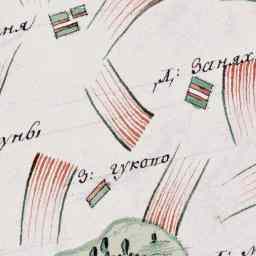 ня
Д: Занях
уны
З: гукопо